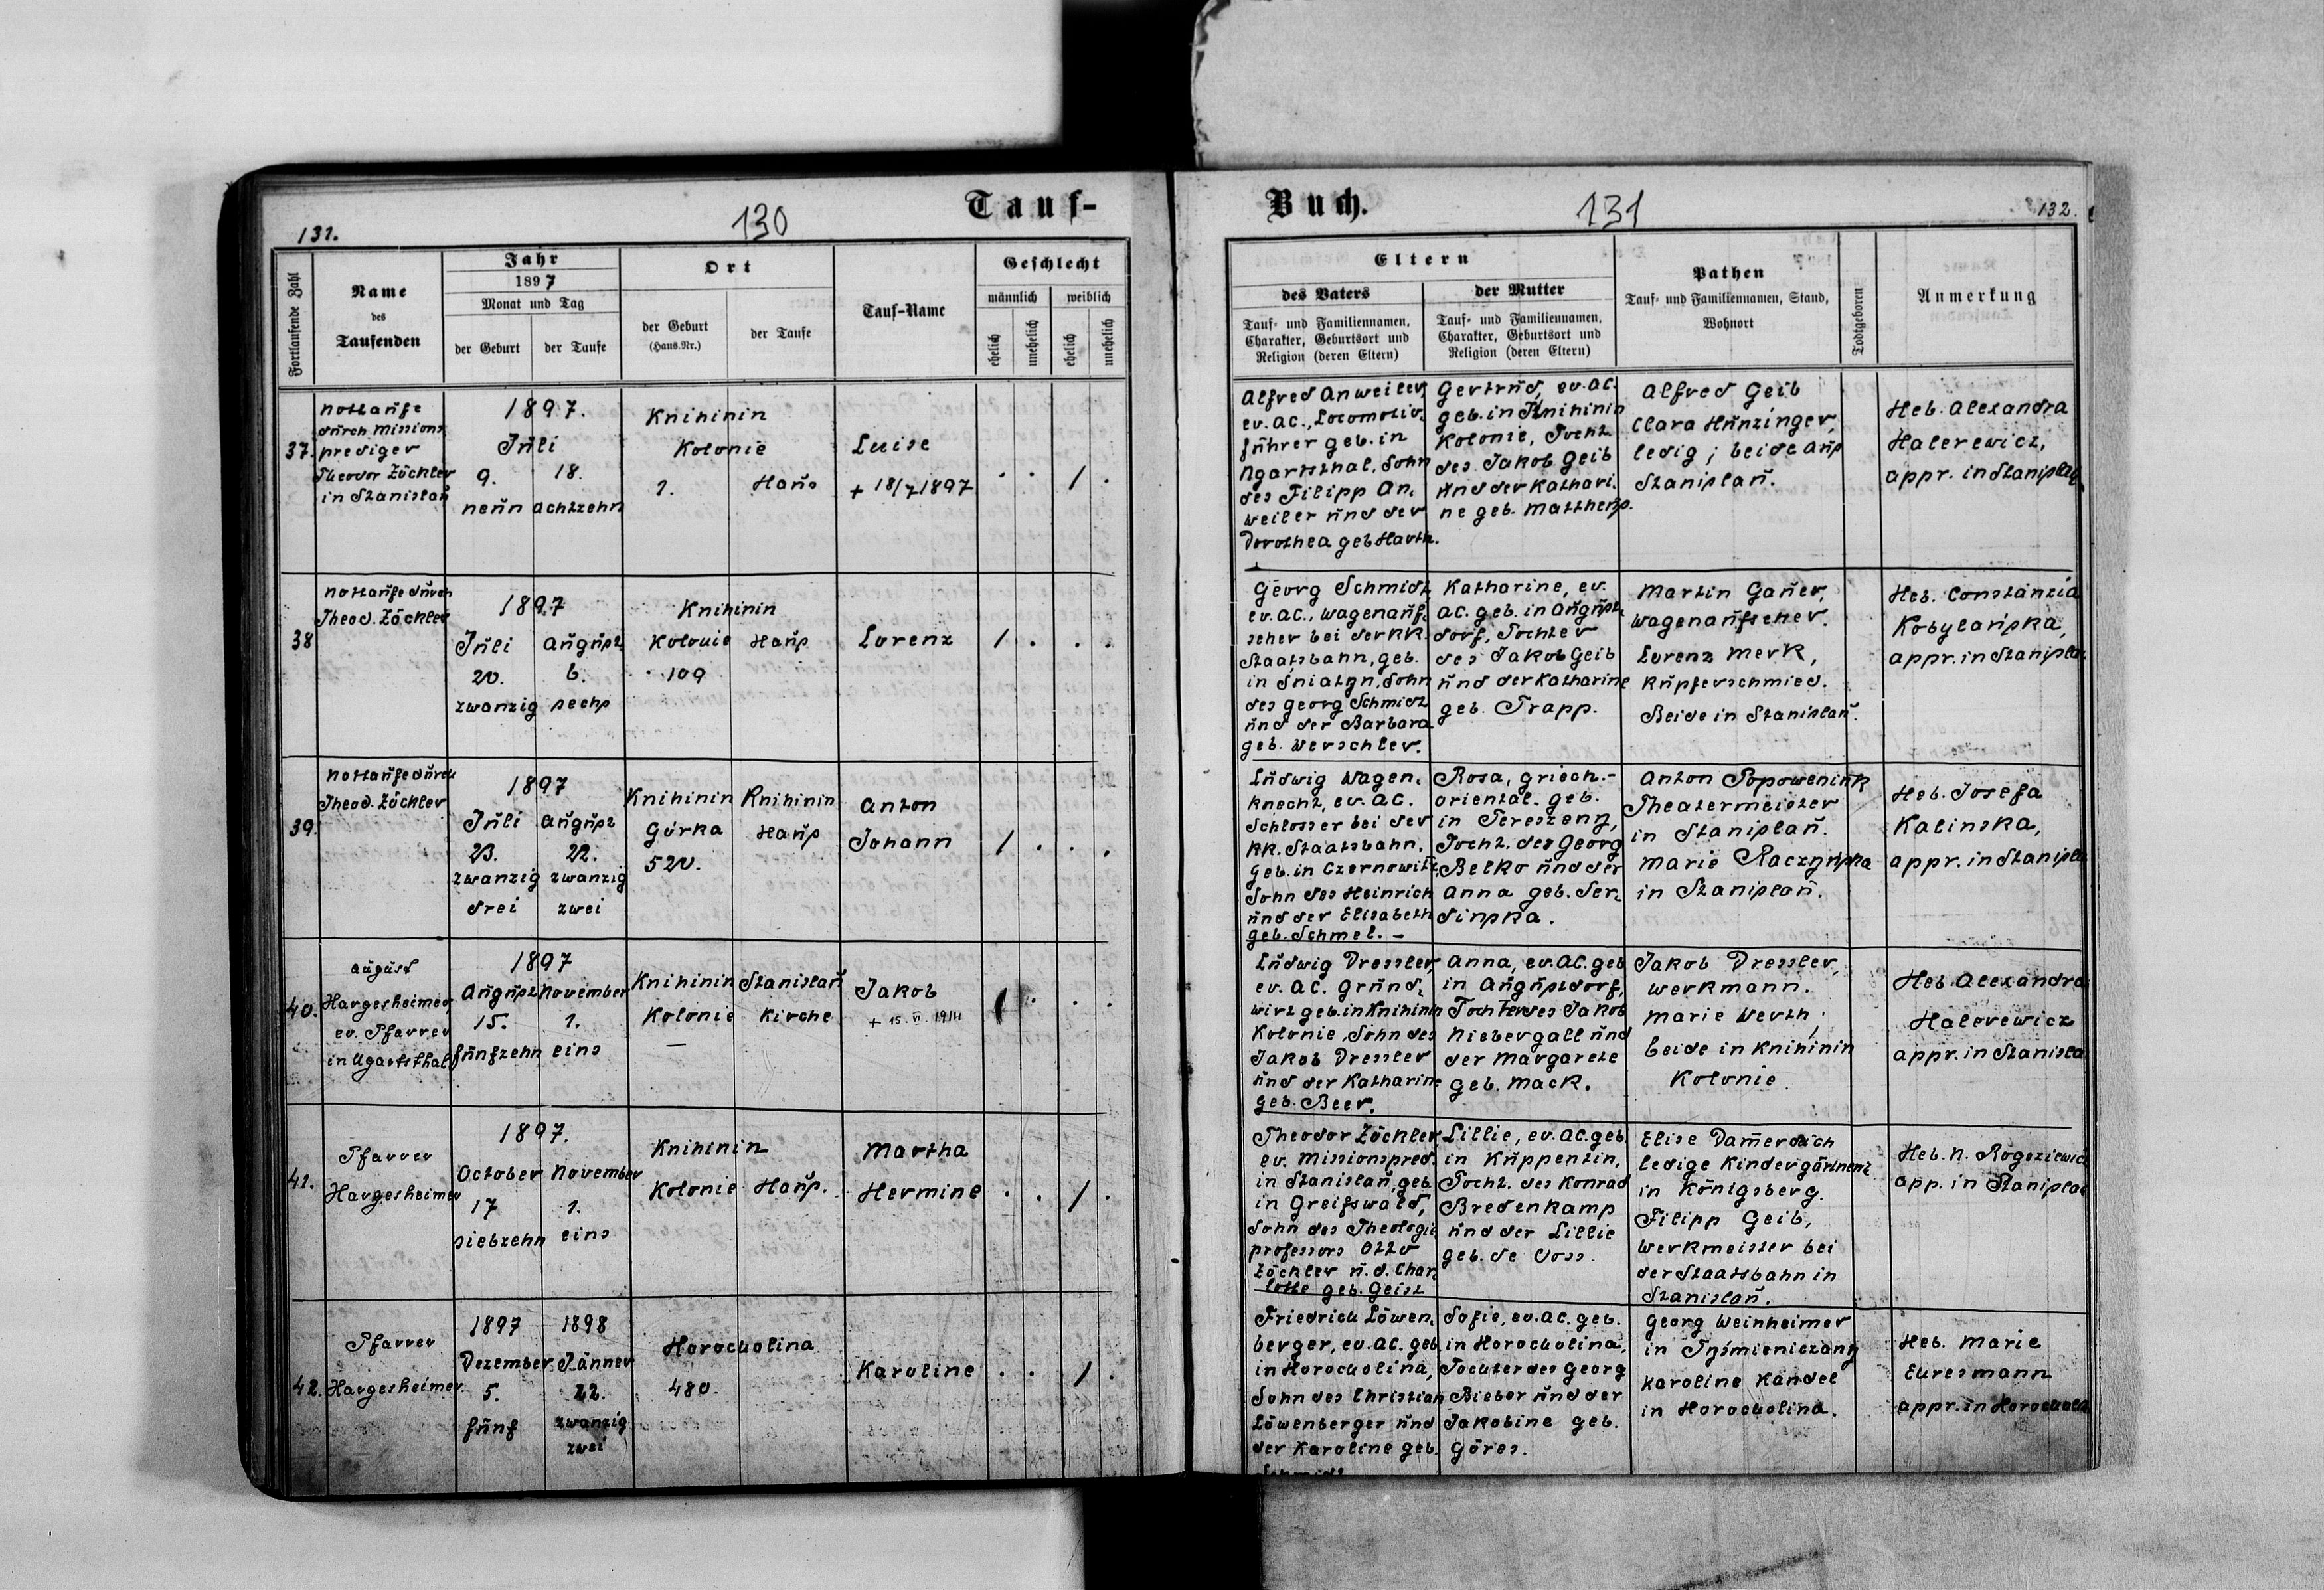 Tauf-
130
131.
Fortlaufende Zahl
Name
des
Taufenden
Jahr
1897
Monat und Tag
der Geburt
der Taufe
Ort
der Geburt
(Haus-Nr.)
der Taufe
Tauf-Name
Geschlecht
männlich
weiblich
ehelich
unehelich
ehelich
unehelich
37.
Nottaufe
durch Missions
prediger
Theodor Zöckler
in Stanislau
1897.
Juli
9. 18.
neun achtzehn
Knihinin
Kolonie
1. Haus
Luise
+ 18/7 1897
. . / .
38
Nottaufe durch
Theod. Zöckler
1897
Juli August
20. 6.
zwanzig sechs
Knihinin
Kolonie Haus
109
Lorenz
/ . . .
39.
Nottaufe durch
Theod. Zöckler
1897
Juli August
23. 22.
zwanzig zwanzig
drei zwei
Knihinin Knihinin
Górka Haus
520.
Anton
Johann
/ . . .
40.
August
Hargesheimer,
ev. Pfarrer
in Ugartsthal
1897
August November
15. 1.
fünfzehn eins
Knihinin Stanislau
Kolonie Kirche
—
Jakob
+ 15. VI. 1914
/ . . .
41.
Pfarrer
Hargesheimer
1897.
October November
17 1.
siebzehn eins
Knihinin
Kolonie Haus.
Martha
Hermine
. . / .
42.
Pfarrer
Hargesheimer
1897 1898
Dezember Jänner
5. 22.
fünf zwanzig
zwei
Horocholina
480.
Karoline
. . / .
Buch.
131
132.
Eltern
des Vaters
Tauf- und Familiennamen,
Charakter, Geburtsort und
Religion (deren Eltern)
der Mutter
Tauf- und Familiennamen,
Charakter, Geburtsort und
Religion (deren Eltern)
Pathen
Tauf- und Familiennamen, Stand,
Wohnort
Todtgeboren
Anmerkung
Alfred Anweiler,
ev. AC., Locomotiv-
führer geb. in
Ugartsthal, Sohn
des Filipp An-
weiler und der
Dorothea geb Harth.
Gertrud, ev. AC.
geb. in Knihinin
Kolonie, Tocht.
des Jakob Geib
und der Kathari-
ne geb. Mattheus.
Alfred Geib
Clara Hunzinger,
ledig; beide aus
Stanislau.
Heb. Alexandra
Halerewicz,
appr. in Stanislau
Georg Schmidt,
ev. AC., Wagenauf-
seher bei der kk.
Staatsbahn, geb.
in Sniatyn, Sohn
des Georg Schmidt
und der Barbara
geb. Werschler.
Katharine, ev.
AC. geb. in August-
dorf, Tochter
des Jakob Geib
und der Katharine
geb. Trapp.
Martin Gauer,
Wagenaufseher.
Lorenz Merk,
Kupferschmied.
Beide in Stanislau.
Heb. Constanzia
Kobylańska,
appr. in Stanislau
Ludwig Wagen-
knecht, ev. AC.
Schlosser bei der
kk. Staatsbahn,
geb. in Czernowitz,
Sohn des Heinrich
und der Elisabeth
geb. Schmel. –
Rosa, griech.-
oriental. geb.
in Tereszeny,
Tocht. des Georg
Belko und der
Anna geb. Ser-
dinska.
Anton Popoweniuk
Theatermeister
in Stanislau.
Marie Raczynska
in Stanislau.
Heb. Josefa
Kalinska,
appr. in Stanislau
Ludwig Dressler,
ev. AC. Grund-
wirt geb. in Knihinin
Kolonie, Sohn des
Jakob Dressler
und der Katharine
geb. Beer.
Anna, ev. AC. geb
in Augustdorf,
Tochter des Jakob
Niebergall und
der Margarete
geb. Mack.
Jakob Dressler,
Werkmann.
Marie Werth;
beide in Knihinin
Kolonie.
Heb. Alexandra
Halerewicz
appr. in Stanislau
Theodor Zöckler,
ev. Missionspred.
in Stanislau, geb.
in Greifswald,
Sohn des Theologie
professors Otto
Zöckler u. d. Char-
lotte geb. Geist
Lillie, ev. AC. geb.
in Kuppentin,
Tocht. des Konrad
Bredenkamp
und der Lillie
geb. de Voss.
Elise Damerdach
ledige Kindergärtnerin
in Königsberg.
Filipp Geib,
Werkmeister bei
der Staatsbahn in
Stanislau.
Heb. N. Rogoziewicz
app. in Stanislau
Friedrich Löwen-
berger, ev. AC. geb.
in Horocholina,
Sohn des Christian
Löwenberger und
der Karoline geb.
Schmidt
Sofie, ev. AC. geb.
in Horocholina,
Tochter des Georg
Bieber und der
Jakobine geb.
Göres.
Georg Weinheimer
in Tyśmieniczany
Karoline Kandel
in Horocholina.
Heb. Marie
Ehresmann
appr. in Horocholina